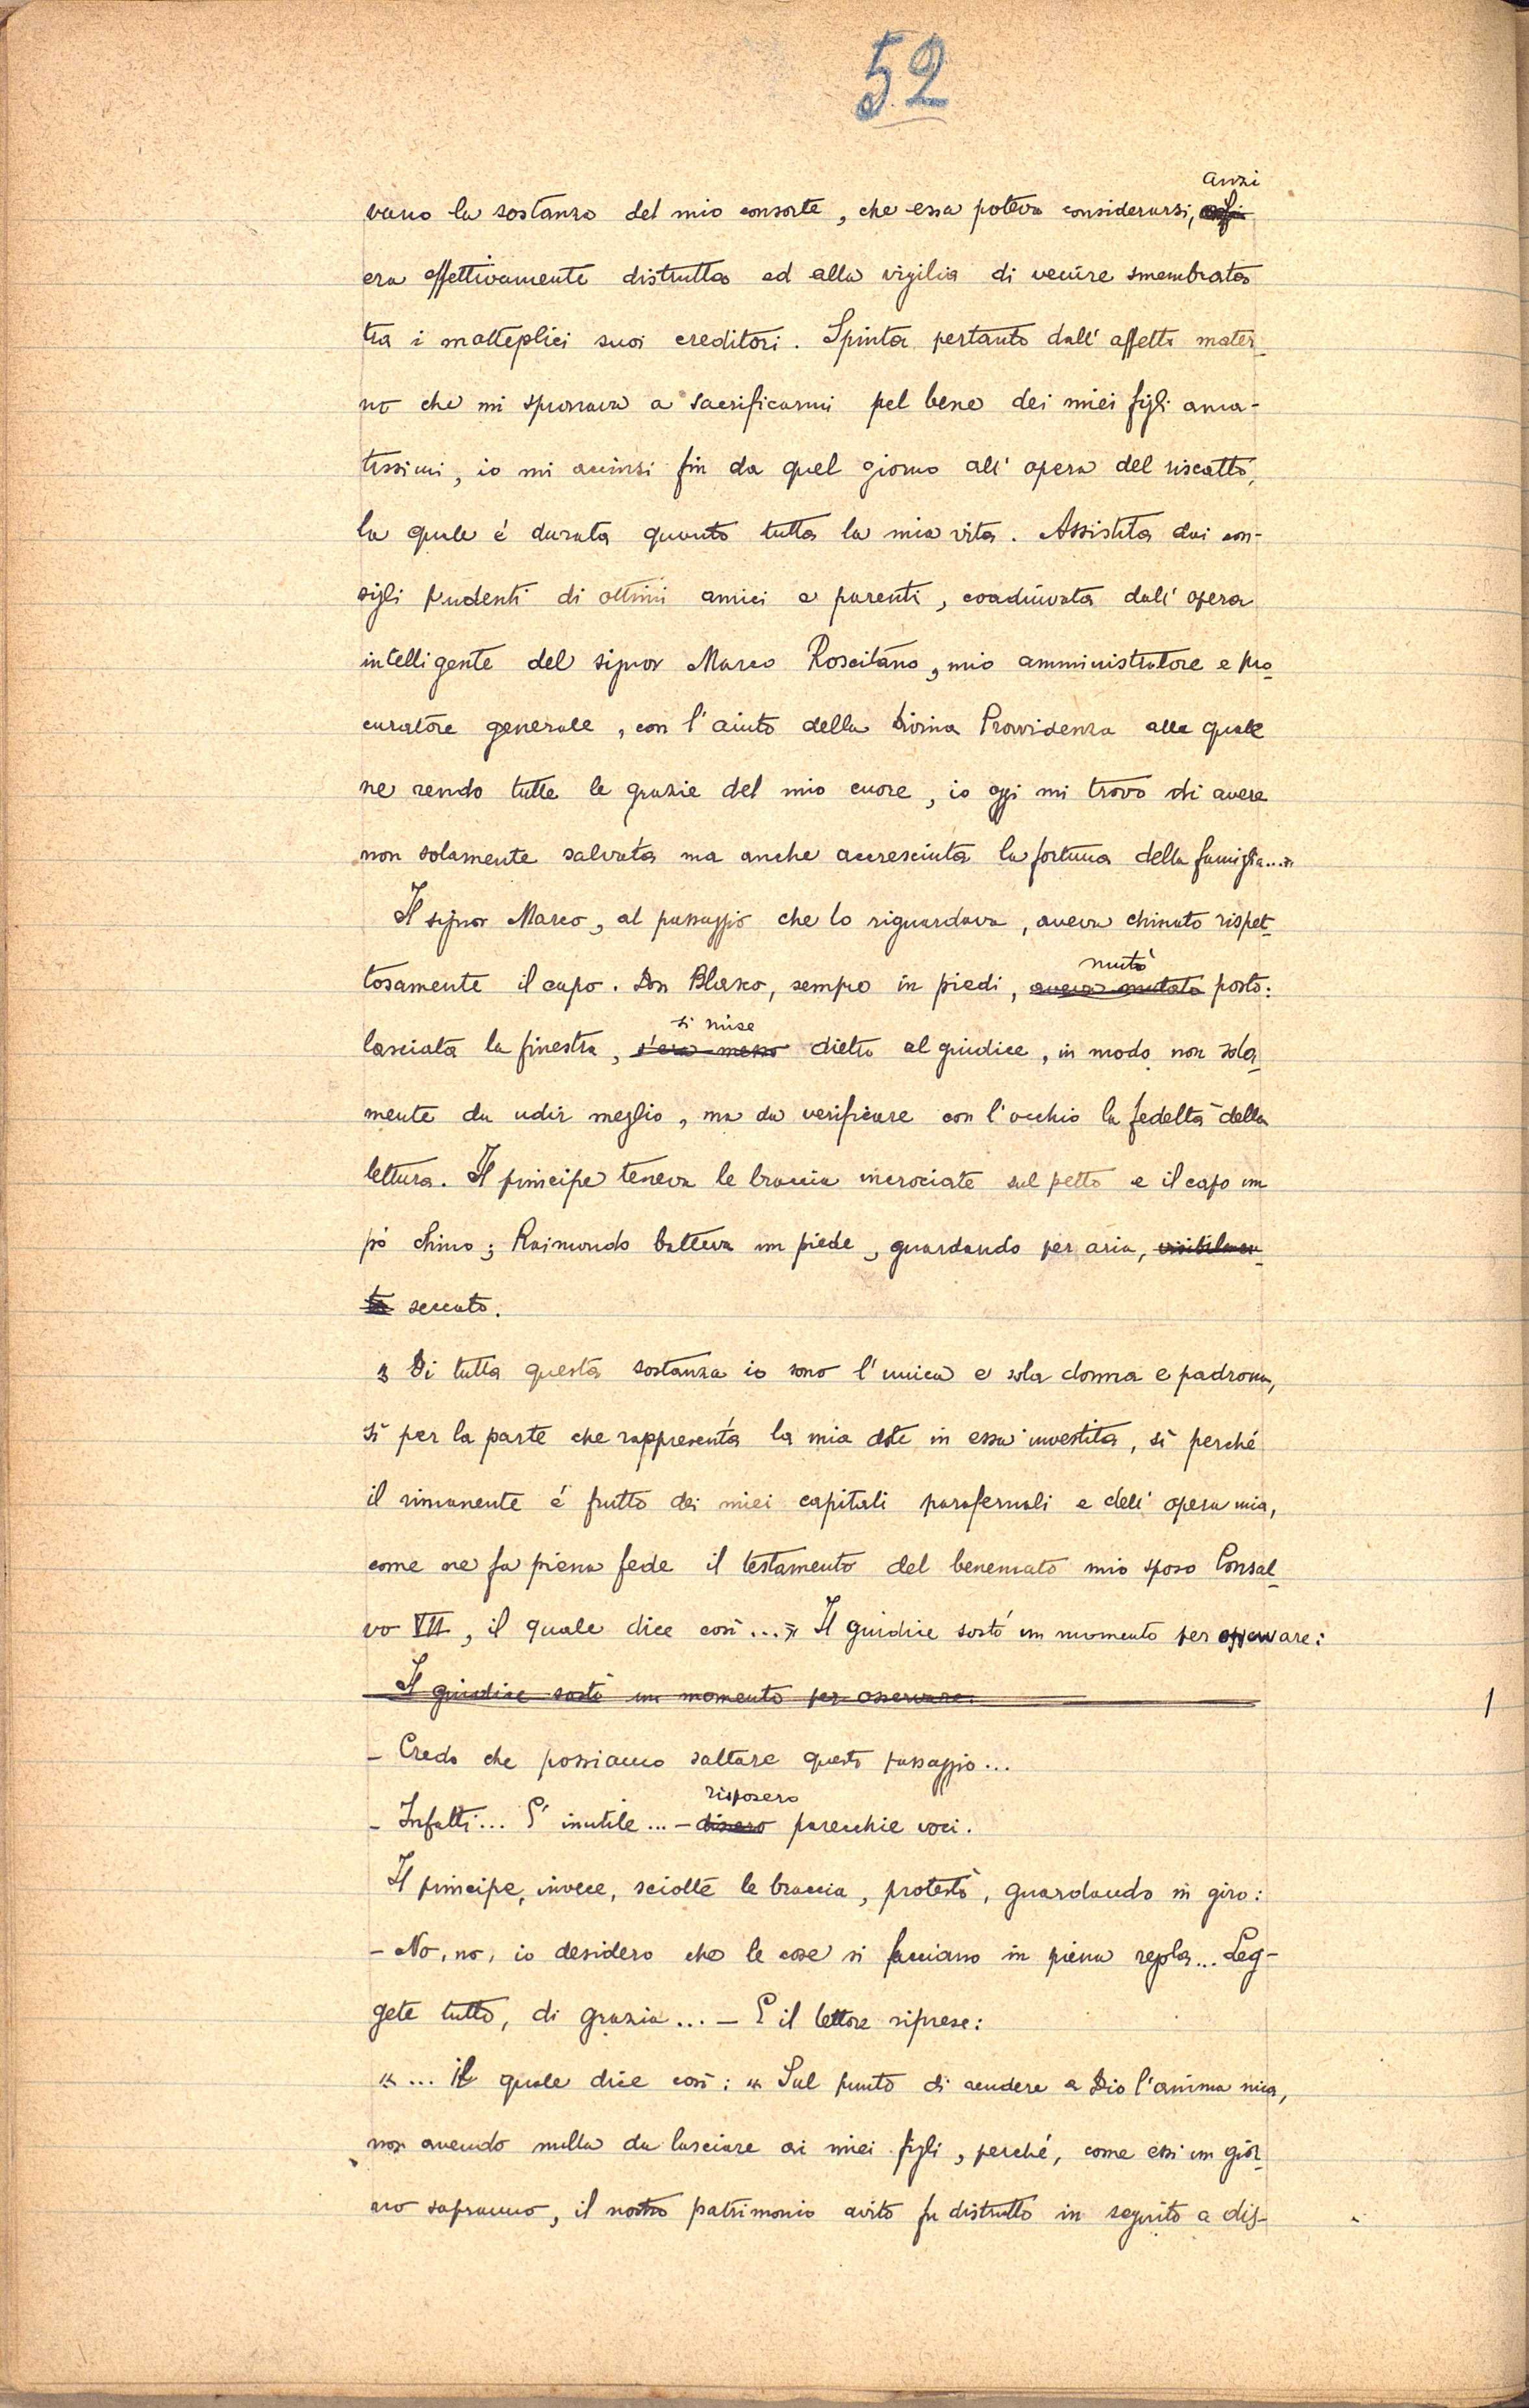 52
anzi
vano la sostanza del mio consorte, che essa poteva considerarsi,
era effettivamente distrutta ed alla vigilia di venire smembrata
tra i molteplici suoi creditori. Spinta pertanto dall'affetto mater-
no che mi spronava a sacrificarmi pel bene dei miei figli ama-
tissimi, io mi accinsi fin da quel giorno all'opera del riscatto,
la quale é durata quanto tutta la mia vita. Assistita dai con-
sigli prudenti di ottimi amici e parenti, coadiuvata dall'opera
intelligente del signor Marco Roscitano, mio amministratore e pro-
curatore generale, con l'aiuto della Divina Provvidenza alla quale
ne rendo tutte le grazie del mio cuore, io oggi mi trovo di avere
non solamente salvata ma anche accresciuta la fortuna della famiglia...»
Il signor Marco, al passaggio che lo riguardava, aveva chinato rispet-
tosamente il capo. Don Blasco, sempre in piedi, aveva mutato mutò posto:
lasciata la finestra, s'era messo si mise dietro al giudice, in modo non sola-
mente da udir meglio, ma da verificare con l'occhio la fedeltà della
lettura. Il principe teneva le braccia incrociate sul petto e il capo un
pò chino; Raimondo batteva un piede, guardando per aria, visibilmen-
te seccato.
« Di tutta questa sostanza io sono l'unica e sola donna e padrona,
sì per la parte che rappresenta la mia dote in essa investita, sì perché
il rimanente é frutto dei miei capitali parafernali e dell'opera mia,
come ne fa piena fede il testamento del beneamato mio sposo Consal-
vo VII, il quale dice così...» Il giudice sostó un momento per osservare:
Il giudice sostò un momento per osservare:
1
- Credo che possiamo saltare questo passaggio...
- Infatti... E' inutile... - dissero risposero parecchie voci.
Il principe, invece, sciolte le braccia, protestò, guardando in giro:
- No, no, io desidero che le cose si facciano in piena regola... Leg-
gete tutto, di grazia... - E il lettore riprese:
«... il quale dice così: « Sul punto di rendere a Dio l'anima mia,
non avendo nulla da lasciare ai miei figli, perché, come essi un gior-
no sapranno, il nostro patrimonio avito fu distrutto in seguito a dis-